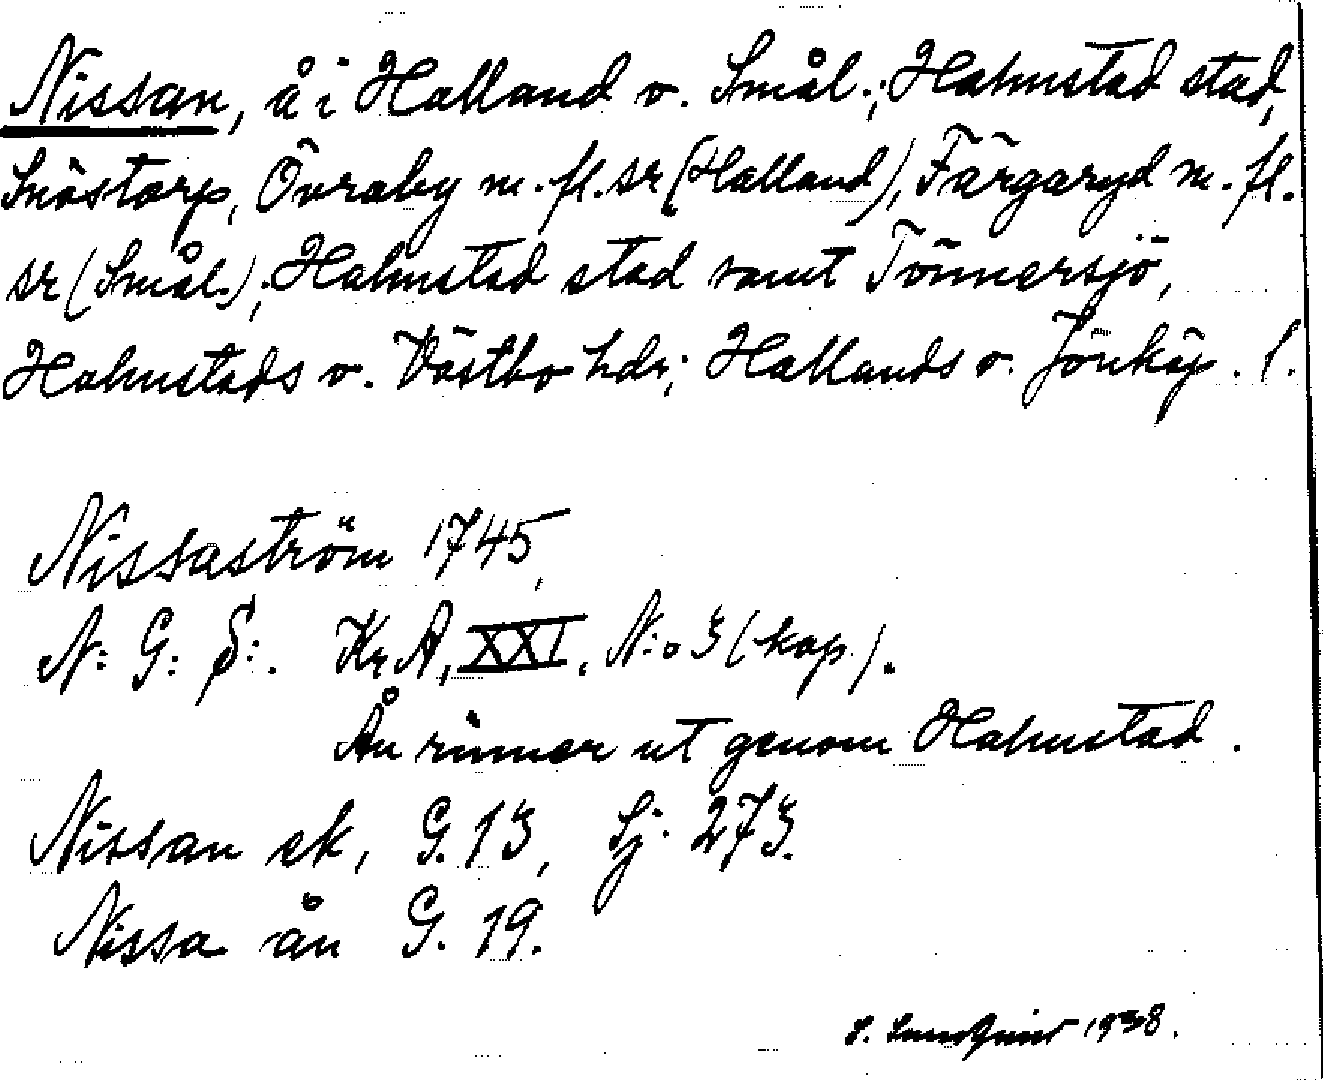 Nissan, å i Halland o. Smål.; Halmstad stad,
Snöstorp, Övraby m. fl. sr (Halland), Färgaryd m. fl.
sr (Smål.); Halmstad stad samt Tönnersjö,
Halmstads o. Västbo hdr; Hallands o. Jönköp. l.
Nissaström 1745,
N: G: S:. KrA, XXI, N:o 3 (kop.).
Ån rinner ut genom Halmstad.
Nissan ek, G. 13, Sj. 273.
Nissa ån G. 19.
S. 1938.